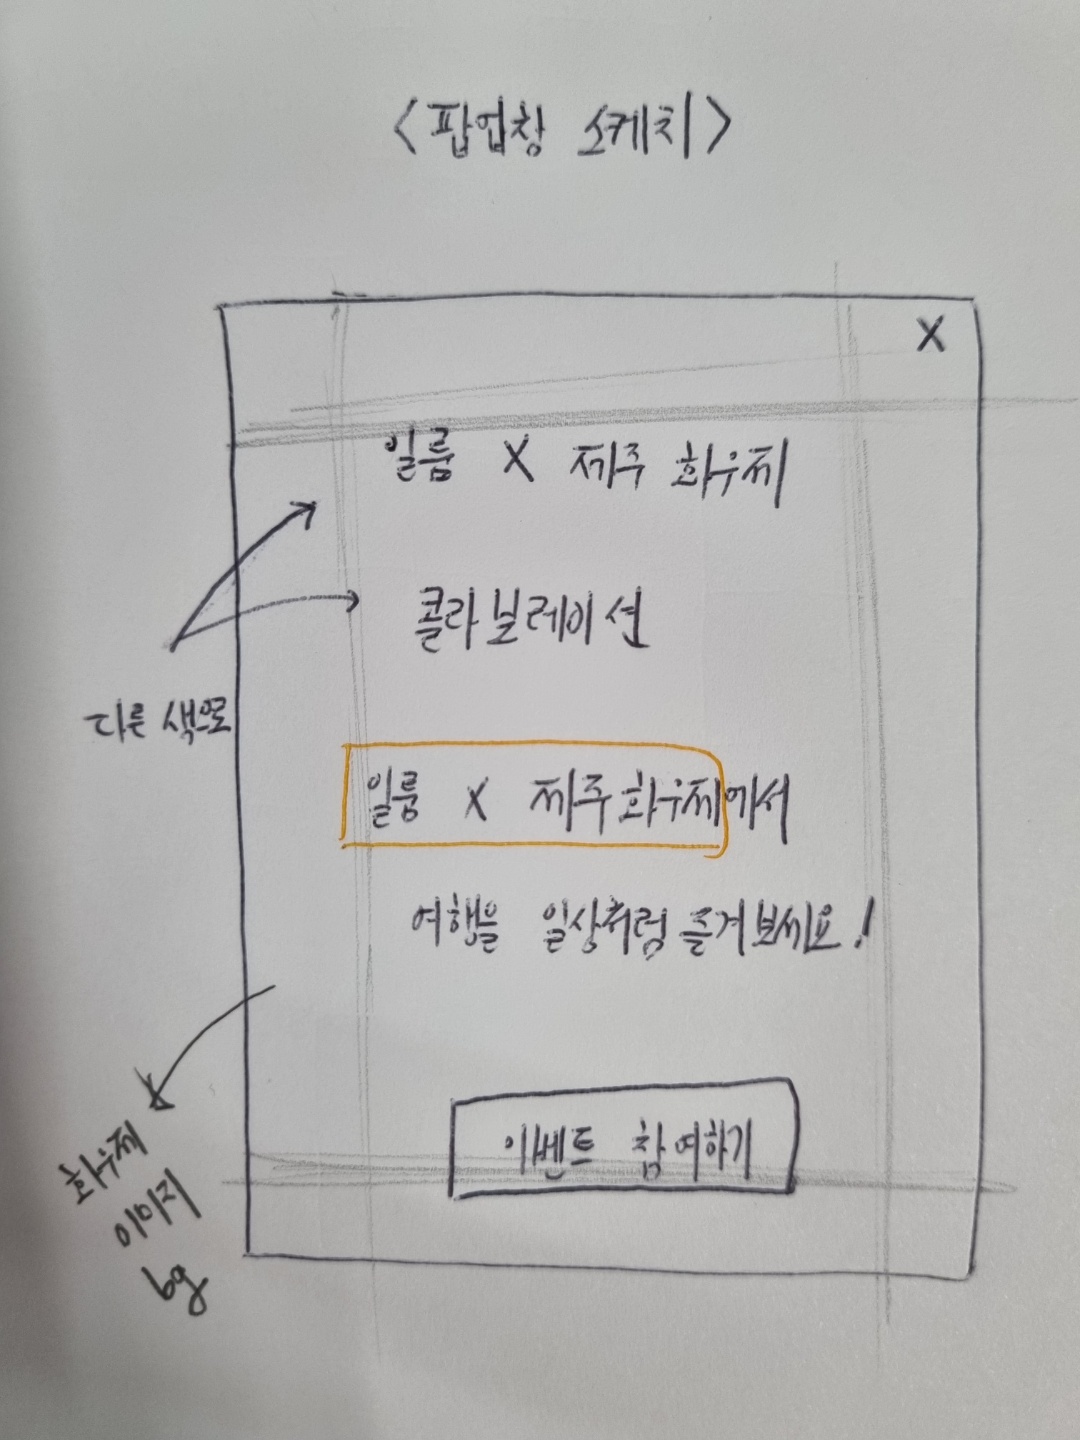 <팝업창 스케치>
X
일룸 X 제주 화우제
콜라 보레이션
다른 색으로
일룸 X 제주 화우제에서
여행을 일상처럼 즐겨보세요!
이벤트 참여하기
화우제
이미지
bg